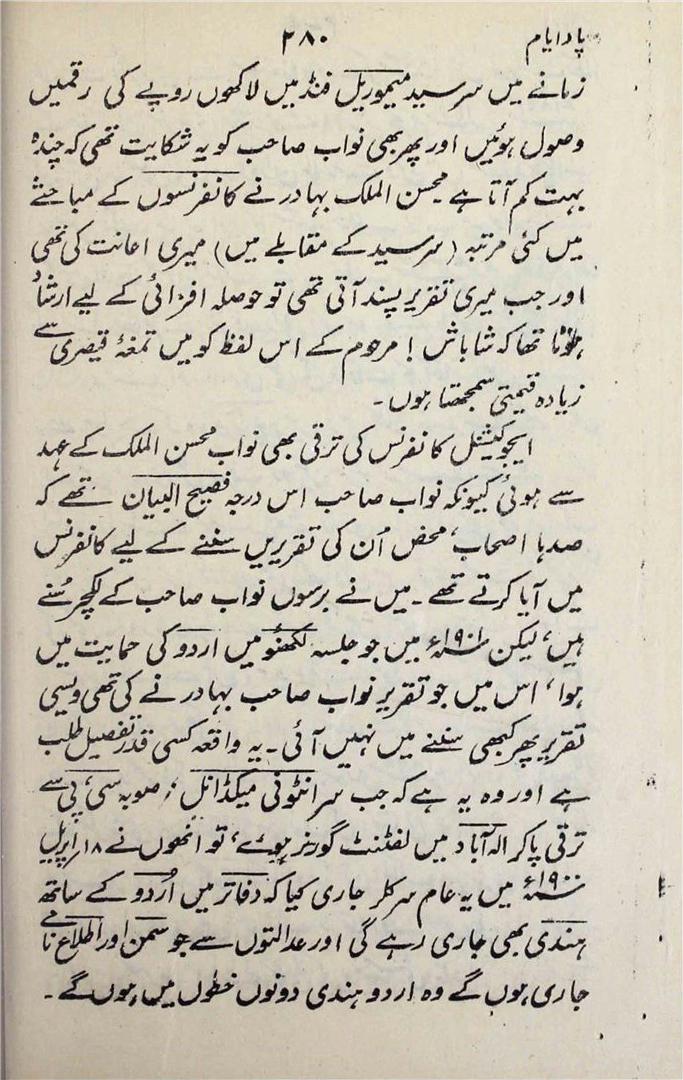 یادایام ۲۸۰
زمانے میں سرسید میموریل فنڈ میں لاکھوں روپے کی رقمیں
وصول ہوئیں اور پھر بھی نواب صاحب کو یہ شکایت تھی کہ چندہ
بہت کم آتا ہے۔ محسن الملک بہادر نے کانفرنسوں کے مباحثے
میں کئی مرتبہ (سرسید کے مقابلے میں) میری اعانت کی تھی
اور جب میری تقریر پسند آتی تھی تو حوصلہ افزائی کے لیے ارشاد
ہوتا تھا کہ شاباش! مرحوم کے اس لفظ کو میں تمغۂ قیصری سے
زیادہ قیمتی سمجھتا ہوں۔
ایجوکیشنل کانفرنس کی ترقی بھی نواب محسن الملک کے عہد
سے ہوئی کیونکہ نواب صاحب اس درجہ فصیح البیان تھے کہ
صدہا اصحاب، محض اُن کی تقریریں سننے کے لیے کانفرنس
میں آیا کرتے تھے۔ میں نے برسوں نواب صاحب کے لکچر سُنے
ہیں، لیکن ۱۹۰۱ء میں جو جلسہ لکھنؤ میں اردو کی حمایت میں
ہوا، اس میں جو تقریر نواب صاحب بہادر نے کی تھی ویسی
تقریر پھر کبھی سننے میں نہیں آئی۔ یہ واقعہ کسی قدر تفصیل طلب
ہے اور وہ یہ ہے کہ جب سر انٹونی میکڈانل، صوبہ سی، پی سے
ترقی پاکر الہ آباد میں لفٹنٹ گورنر ہوئے، تو انھوں نے ۱۸/اپریل
۱۹۰۰ء میں یہ عام سرکلر جاری کیا کہ دفاتر میں اُردو کے ساتھ
ہندی بھی جاری رہے گی اور عدالتوں سے جو سمن اور اطلاع نامے
جاری ہوں گے وہ اردو ہندی دونوں خطوں میں ہوں گے۔